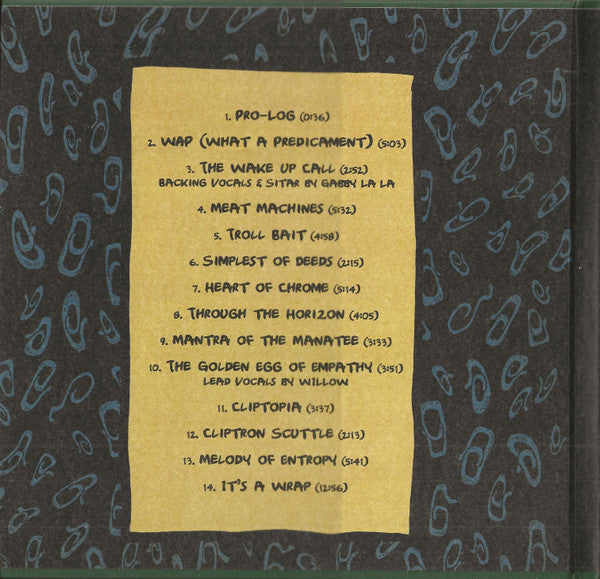 1. PRO-LOG (0:36)
2. WAP (WHAT A PREDICAMENT) (5:03)
3. THE WAKE UP CALL (2:52)
BACKING VOCALS & SITAR BY GABBY LA LA
4. MEAT MACHINES (5:32)
5. TROLL BAIT (4:58)
6. SIMPLEST OF DEEDS (2:15)
7. HEART OF CHROME (5:14)
8. THROUGH THE HORIZON (4:05)
9. MANTRA OF THE MANATEE (3:33)
10. THE GOLDEN EGG OF EMPATHY (3:51)
LEAD VOCALS BY WILLOW
11. CLIPTOPIA (3:37)
12. CLIPTRON SCUTTLE (2:13)
13. MELODY OF ENTROPY (5:41)
14. IT'S A WRAP (12:56)